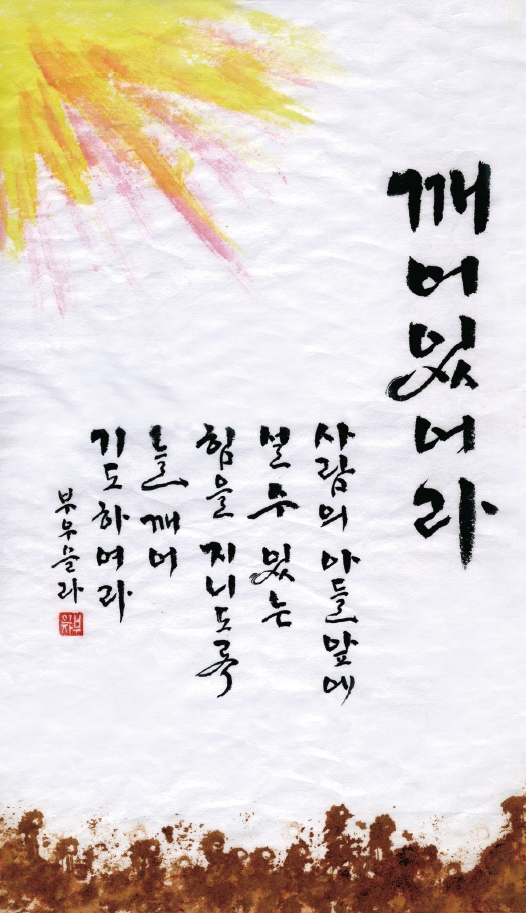 깨어있어라
사람의 아들앞에
설 수 있는
힘을 지니도록
늘 깨어
기도하여라
부우을라